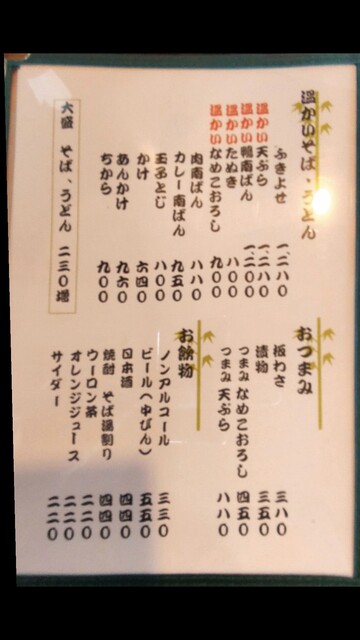 温かいそば、うどん
ふきよせ 一、二八〇
温かい天ぷら 一、二八〇
温かい鴨南ばん 一、二〇〇
温かいたぬき 八〇〇
温かいなめこおろし 九〇〇
肉南ばん 八八〇
カレー南ばん 九五〇
玉子とじ 八〇〇
かけ 六四〇
あんかけ 九六〇
ちから 九〇〇
大盛 そば、うどん 二三〇増
おつまみ
板わさ 三八〇
漬物 三五〇
つまみなめこおろし 四五〇
つまみ天ぷら 八八〇
お飲物
ノンアルコール 三三〇
ビール（中びん） 五五〇
日本酒 四四〇
焼酎 そば湯割り 四四〇
ウーロン茶 二二〇
オレンジジュース 二二〇
サイダー 二二〇